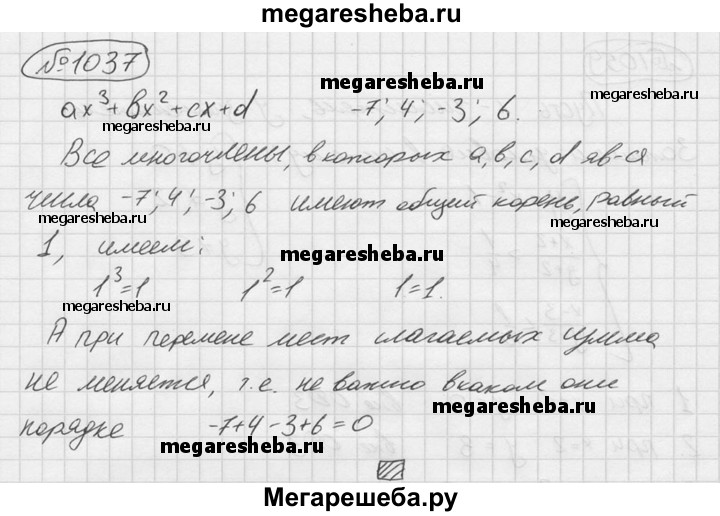 megaresheba.ru
№1037
ax³+bx²+cx+d -7; 4; -3; 6.
megaresheba.ru
megaresheba.ru
Все многочлены, в которых a, b, c, d яв-ся
числа -7; 4; -3; 6 имеют общий корень, равный
megaresheba.ru
megaresheba.ru
1, имеем:
megaresheba.ru
1³=1 1²=1 1=1.
megaresheba.ru
megaresheba.ru
А при перемене мест слагаемых сумма
megaresheba.ru
не меняется, т.е. не важно в каком они
megaresheba.ru
порядке -7+4-3+6=0
megaresheba.ru
Мегарешеба.ру